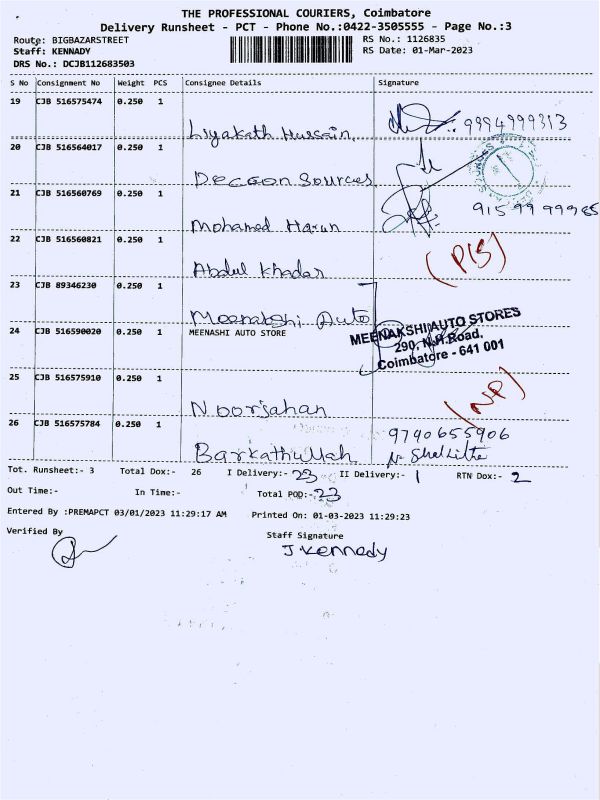 THE PROFESSIONAL COURIERS, Coimbatore
Delivery Runsheet - PCT - Phone No.:0422-3505555 - Page No.:3
Route: BIGBAZARSTREET RS No.: 1126835
Staff: KENNADY RS Date: 01-Mar-2023
DRS No.: DCJB112683503
S No Consignment No Weight PCS Consignee Details Signature
19 CJB 516575474 0.250 1
Liyakath Hussain 9994999313
20 CJB 516564017 0.250 1
Deccon Sources
21 CJB 516560769 0.250 1
Mohamed Harun 915 99 99985
22 CJB 516560821 0.250 1
Abdul Khadar
23 CJB 89346230 0.250 1
Meenakshi Auto
24 CJB 516590020 0.250 1 MEENASHI AUTO STORE
MEENAKSHI AUTO STORES
290, N.H.Road,
Coimbatore - 641 001
25 CJB 516575910 0.250 1
Noorjahan (NP)
26 CJB 516575784 0.250 1 9790655906
Barkathullah
Tot. Runsheet:- 3 Total Dox:- 26 I Delivery:- 23 II Delivery:- 1 RTN Dox:- 2
Out Time:- In Time:- Total POD:- 23
Entered By :PREMAPCT 03/01/2023 11:29:17 AM Printed On: 01-03-2023 11:29:23
Verified By Staff Signature
J Kennady